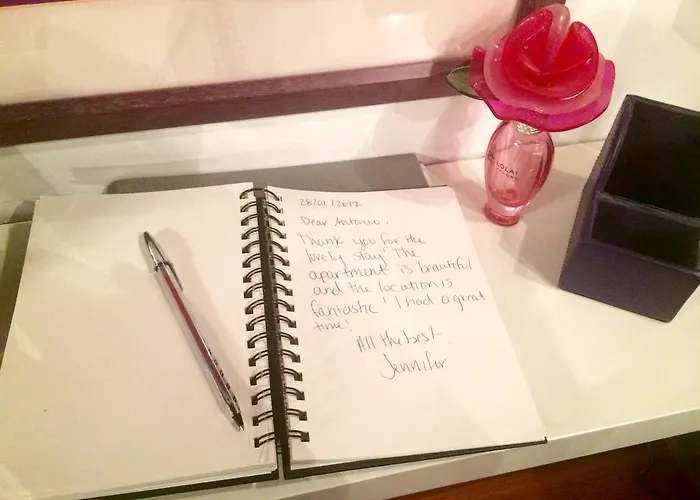 28/01/2017
Dear Antonio,
Thank you for the
lovely stay! The
apartment is beautiful
and the location is
fantastic! I had a great
time!
All the best.
Jennifer
LOLA